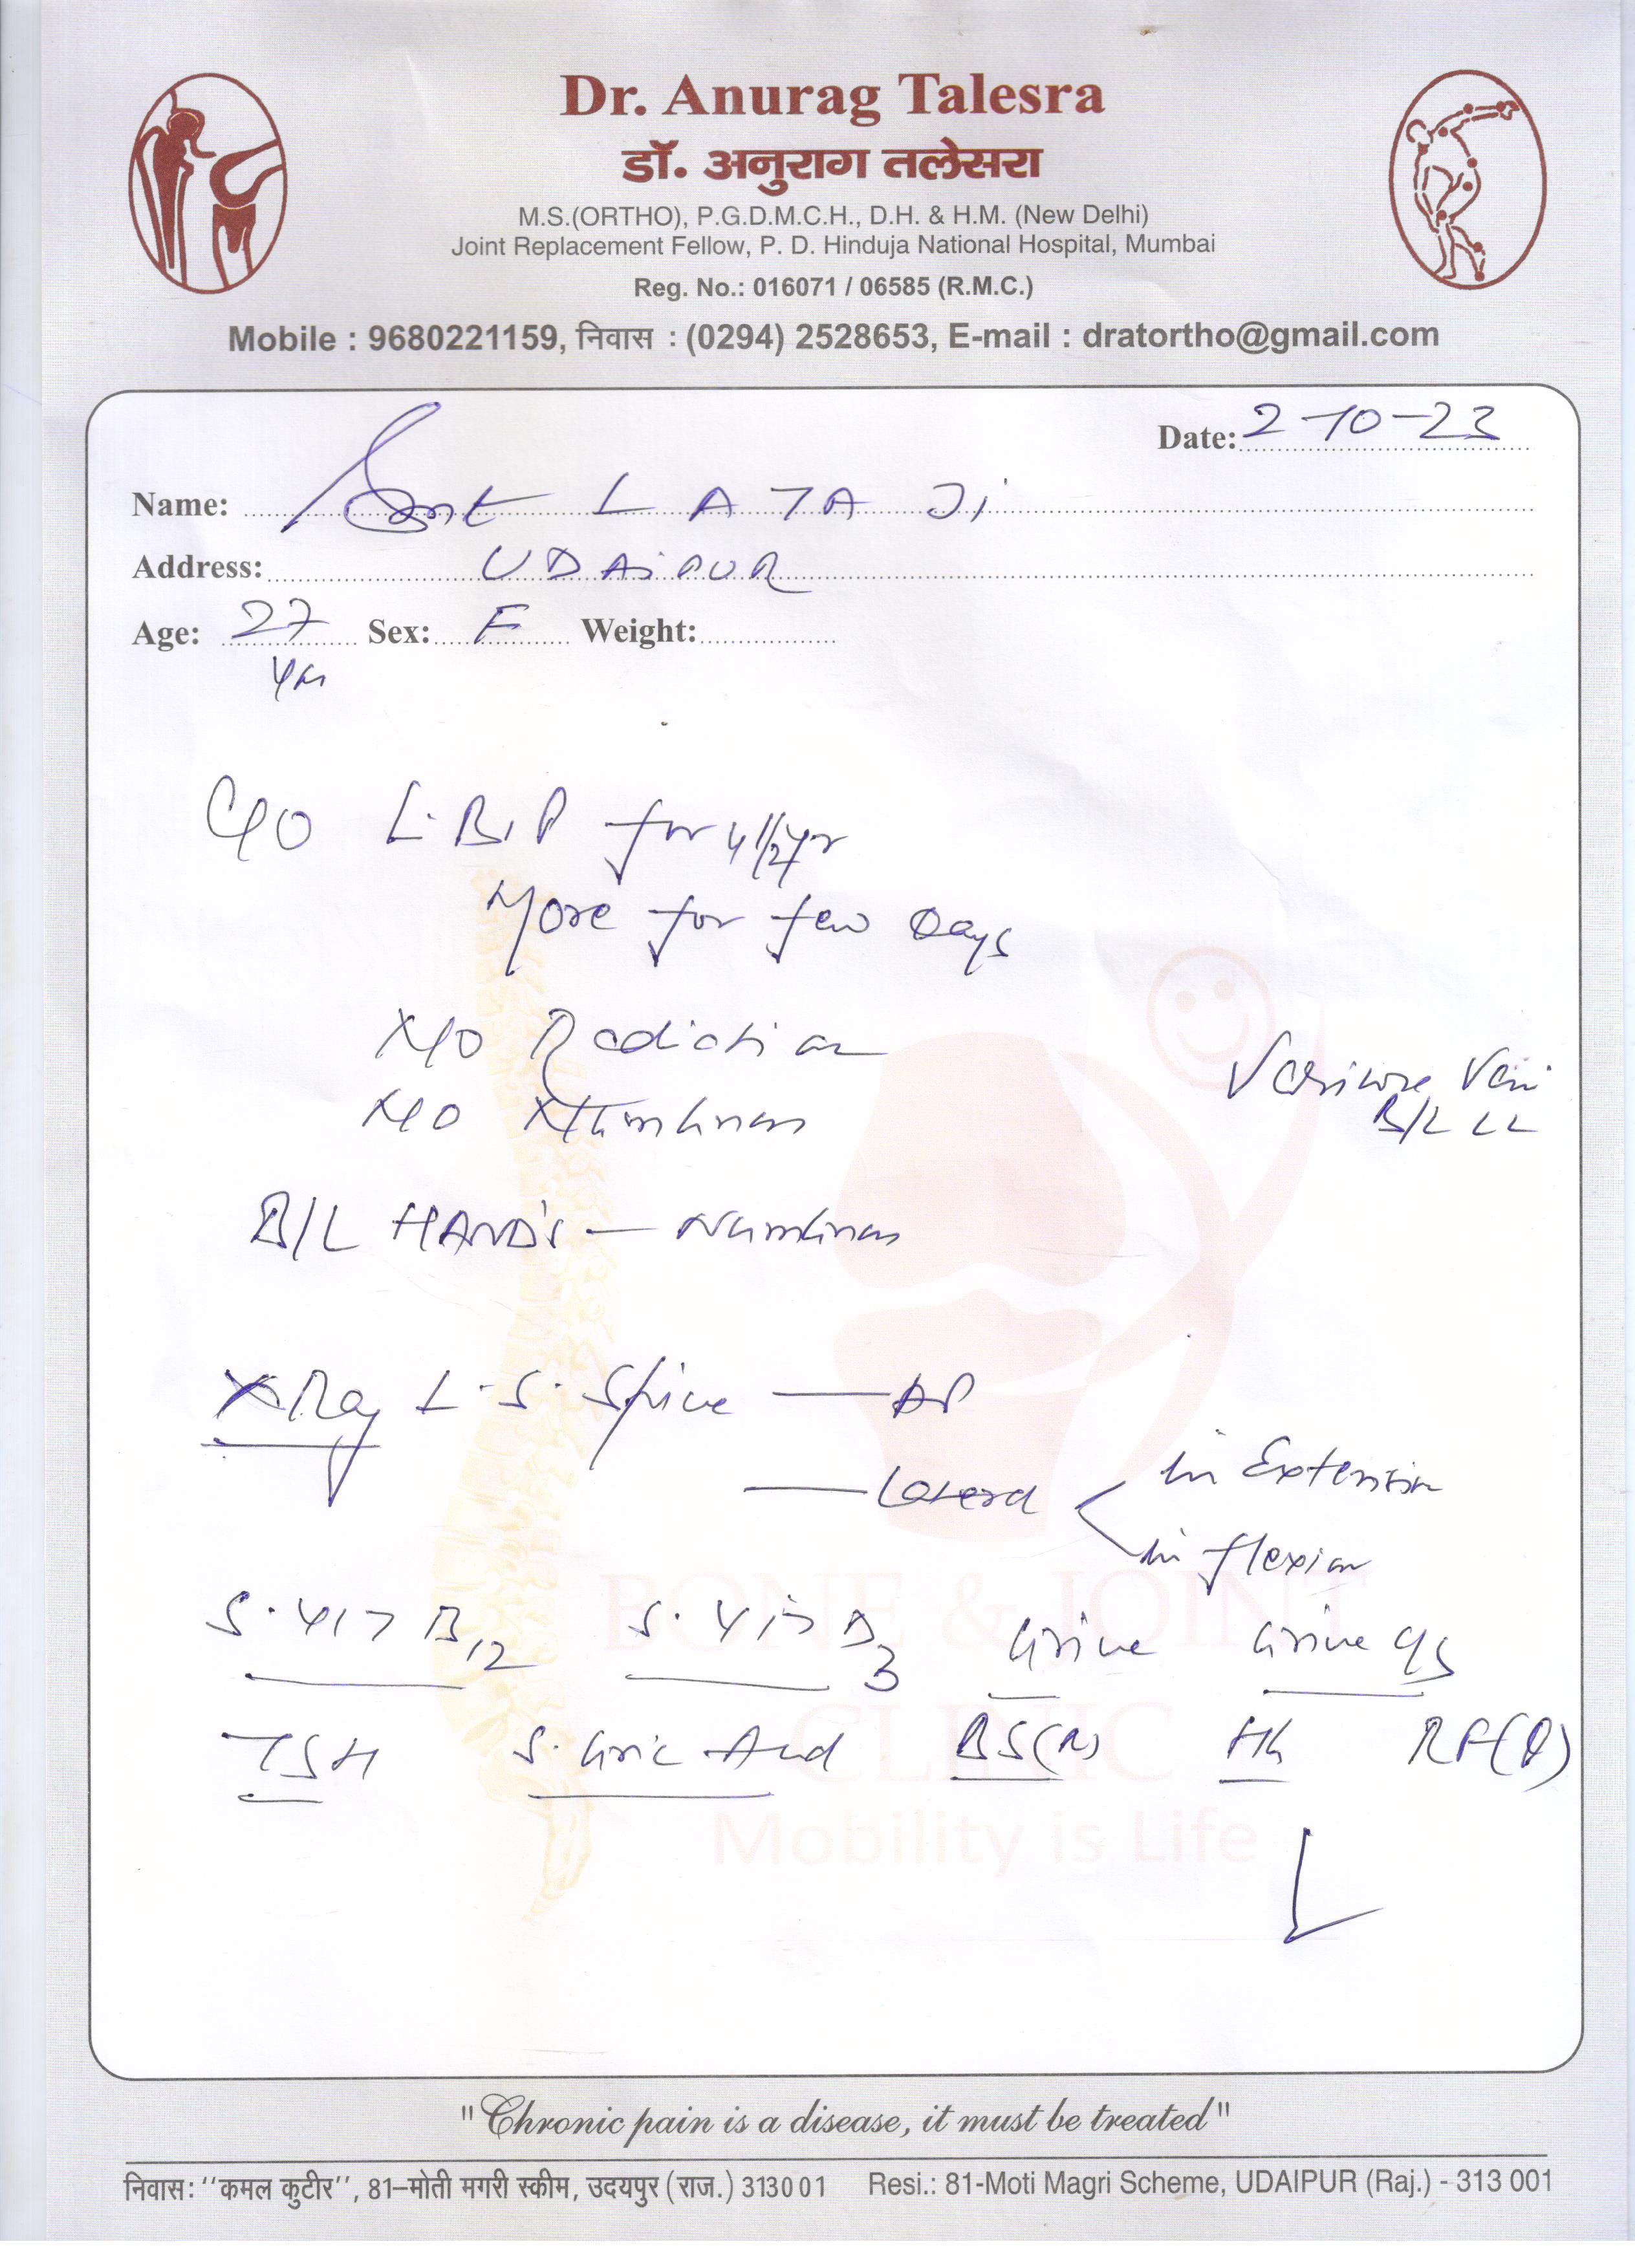 Dr. Anurag Talesra
डॉ. अनुराग तलेसरा
M.S.(ORTHO), P.G.D.M.C.H., D.H. & H.M. (New Delhi)
Joint Replacement Fellow, P. D. Hinduja National Hospital, Mumbai
Reg. No.: 016071 / 06585 (R.M.C.)
Mobile : 9680221159, निवास : (0294) 2528653, E-mail : dratortho@gmail.com
Date: 2-10-23
Name: Smt LATA Ji
Address: UDAiPUR
Age: 27 Sex: F Weight:
yrs
C/O L.B.P for 4 1/2 yr
More for few Days
N/O Radiation
N/O Numbness
Varicose Vein
B/L LL
B/L HAND's — Numbness
X Ray L.S. Spine — AP
— Lateral
in Extension
in flexion
S. Vit B12 S. Vit D3 Urine Urine
TSH S. Uric Acid BS(R) Hb RF(
BONE & JOINT
CLINIC
Mobility is Life
"Chronic pain is a disease, it must be treated"
निवास: ''कमल कुटीर'', 81–मोती मगरी स्कीम, उदयपुर (राज.) 313001 Resi.: 81-Moti Magri Scheme, UDAIPUR (Raj.) - 313 001